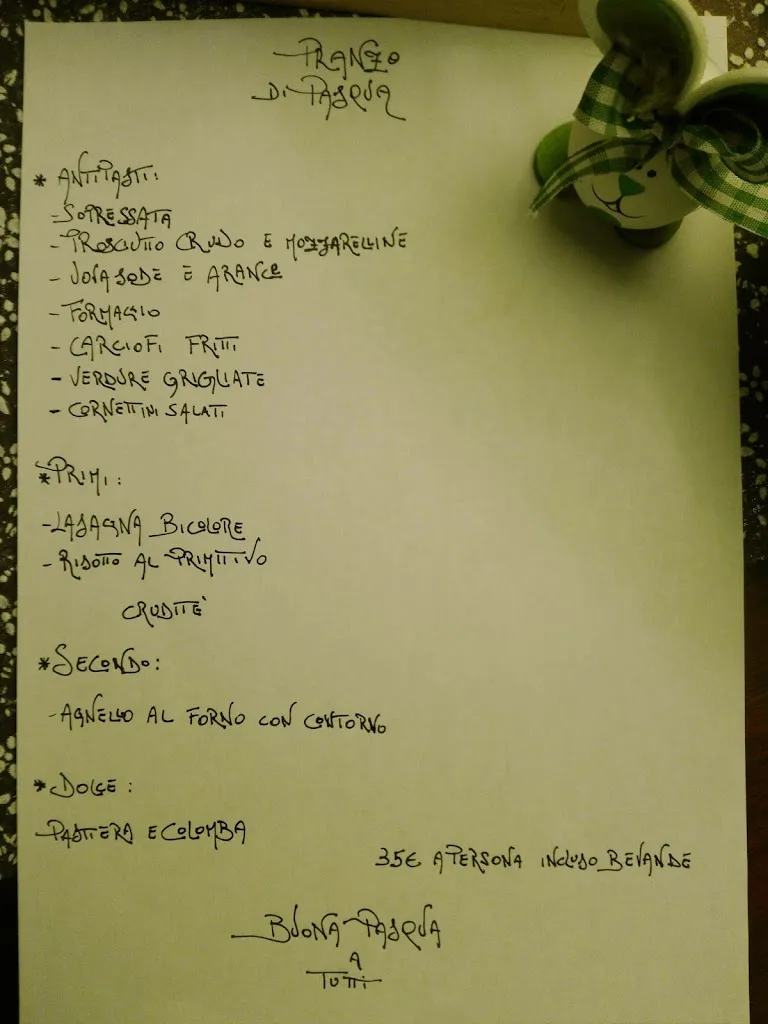 PRANZO
DI PASQUA
* ANTIPASTI:
- SOPRESSATA
- PROSCIUTTO CRUDO E MOZZARELLINE
- UOVA SODE E ARANCE
- FORMAGGIO
- CARCIOFI FRITTI
- VERDURE GRIGLIATE
- CORNETTINI SALATI
* PRIMI:
- LASAGNA BICOLORE
- RISOTTO AL PRIMITIVO
CRUDITE'
* SECONDO:
- AGNELLO AL FORNO CON CONTORNO
* DOLCE:
- PASTIERA E COLOMBA
35€ A PERSONA INCLUSO BEVANDE
BUONA PASQUA
A
TUTTI